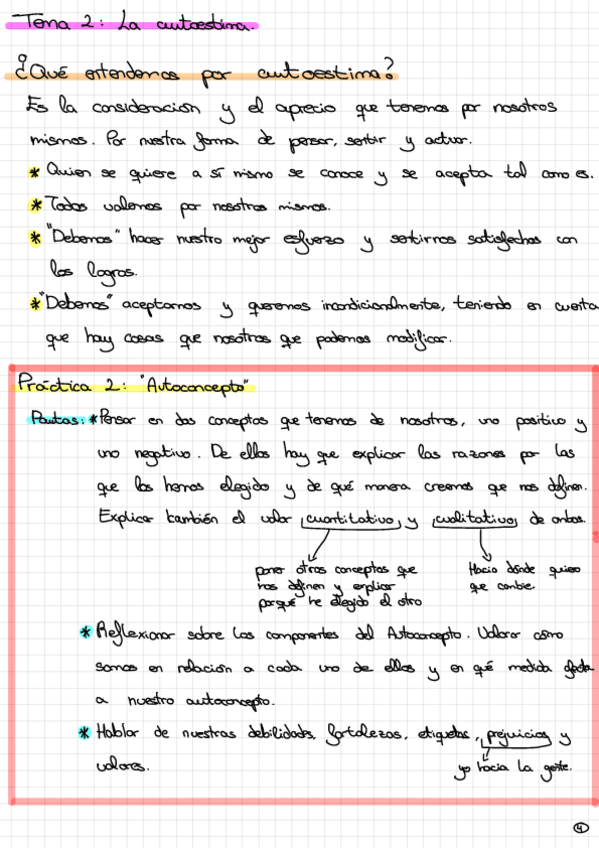 Tema 2: La autoestima.
¿Qué entendemos por autoestima?
Es la consideración y el aprecio que tenemos por nosotros
mismos. Por nuestra forma de pensar, sentir y actuar.
* Quien se quiere a sí mismo se conoce y se acepta tal como es.
* Todos valemos por nosotros mismos.
* "Debemos" hacer nuestro mejor esfuerzo y sentirnos satisfechos con
los logros.
* "Debemos" aceptarnos y querernos incondicionalmente, teniendo en cuenta
que hay cosas que nosotros que podemos modificar.
Práctica 2: "Autoconcepto"
Pautas: * Pensar en dos conceptos que tenemos de nosotros, uno positivo y
uno negativo. De ellos hay que explicar las razones por las
que los hemos elegido y de qué manera creemos que nos definen.
Explicar también el valor cuantitativo y cualitativo de ambos.
poner otros conceptos que
nos definen y explicar
porqué he elegido el otro
Hacia dónde quiero
que cambie.
* Reflexionar sobre los componentes del Autoconcepto. Valorar cómo
somos en relación a cada uno de ellos y en qué medida afecta
a nuestro autoconcepto.
* Hablar de nuestras debilidades, fortalezas, etiquetas, prejuicios y
valores.
yo hacia la gente.
4